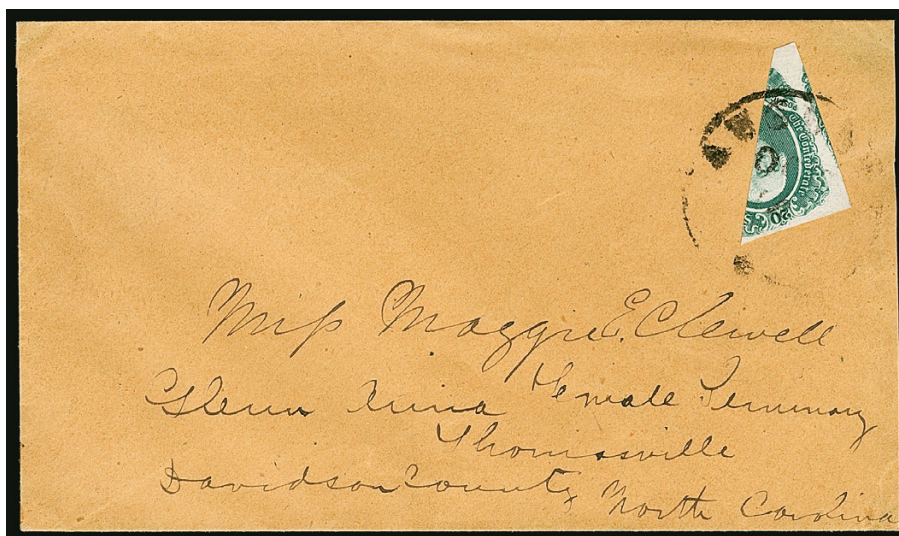 The Confederate
20
Miss Maggie E. Clewell
Glenn Anna Female Seminary
Thomasville
Davidson County
North Carolina